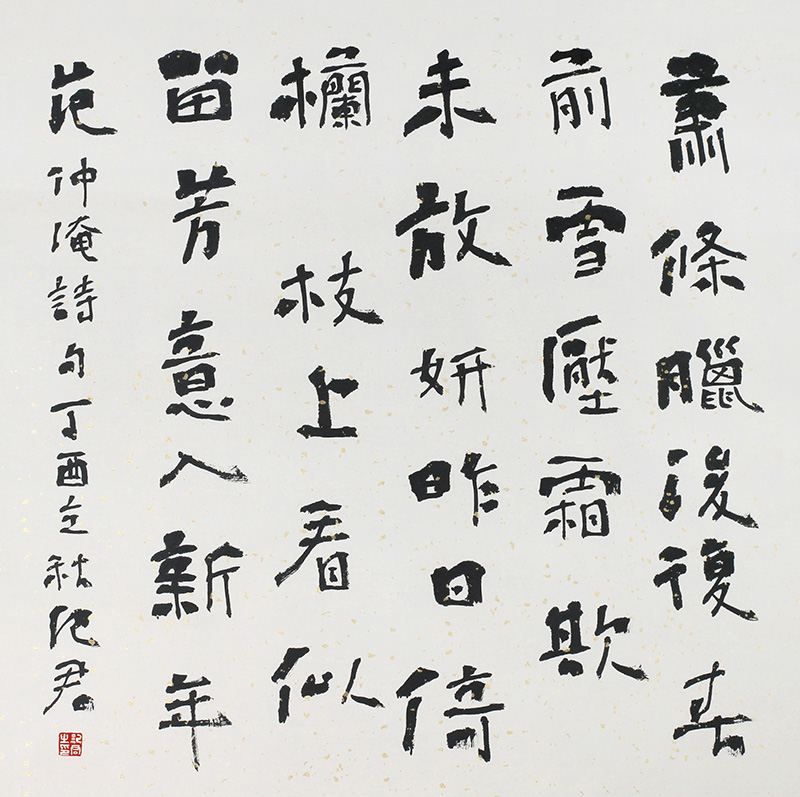 蕭條臘後復春
前雪壓霜欺
未放妍昨日倚
欄枝上看似
留芳意入新年
范仲淹詩句丁酉立秋紀君